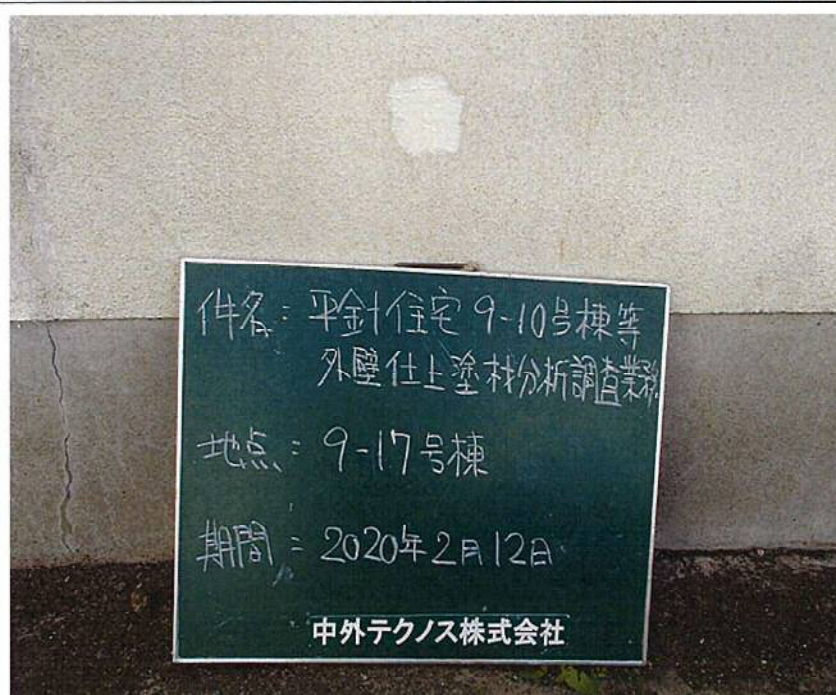 件名：平針住宅 9-10号棟等
外壁仕上塗材分析調査業務
地点：9-17号棟
期間：2020年2月12日
中外テクノス株式会社